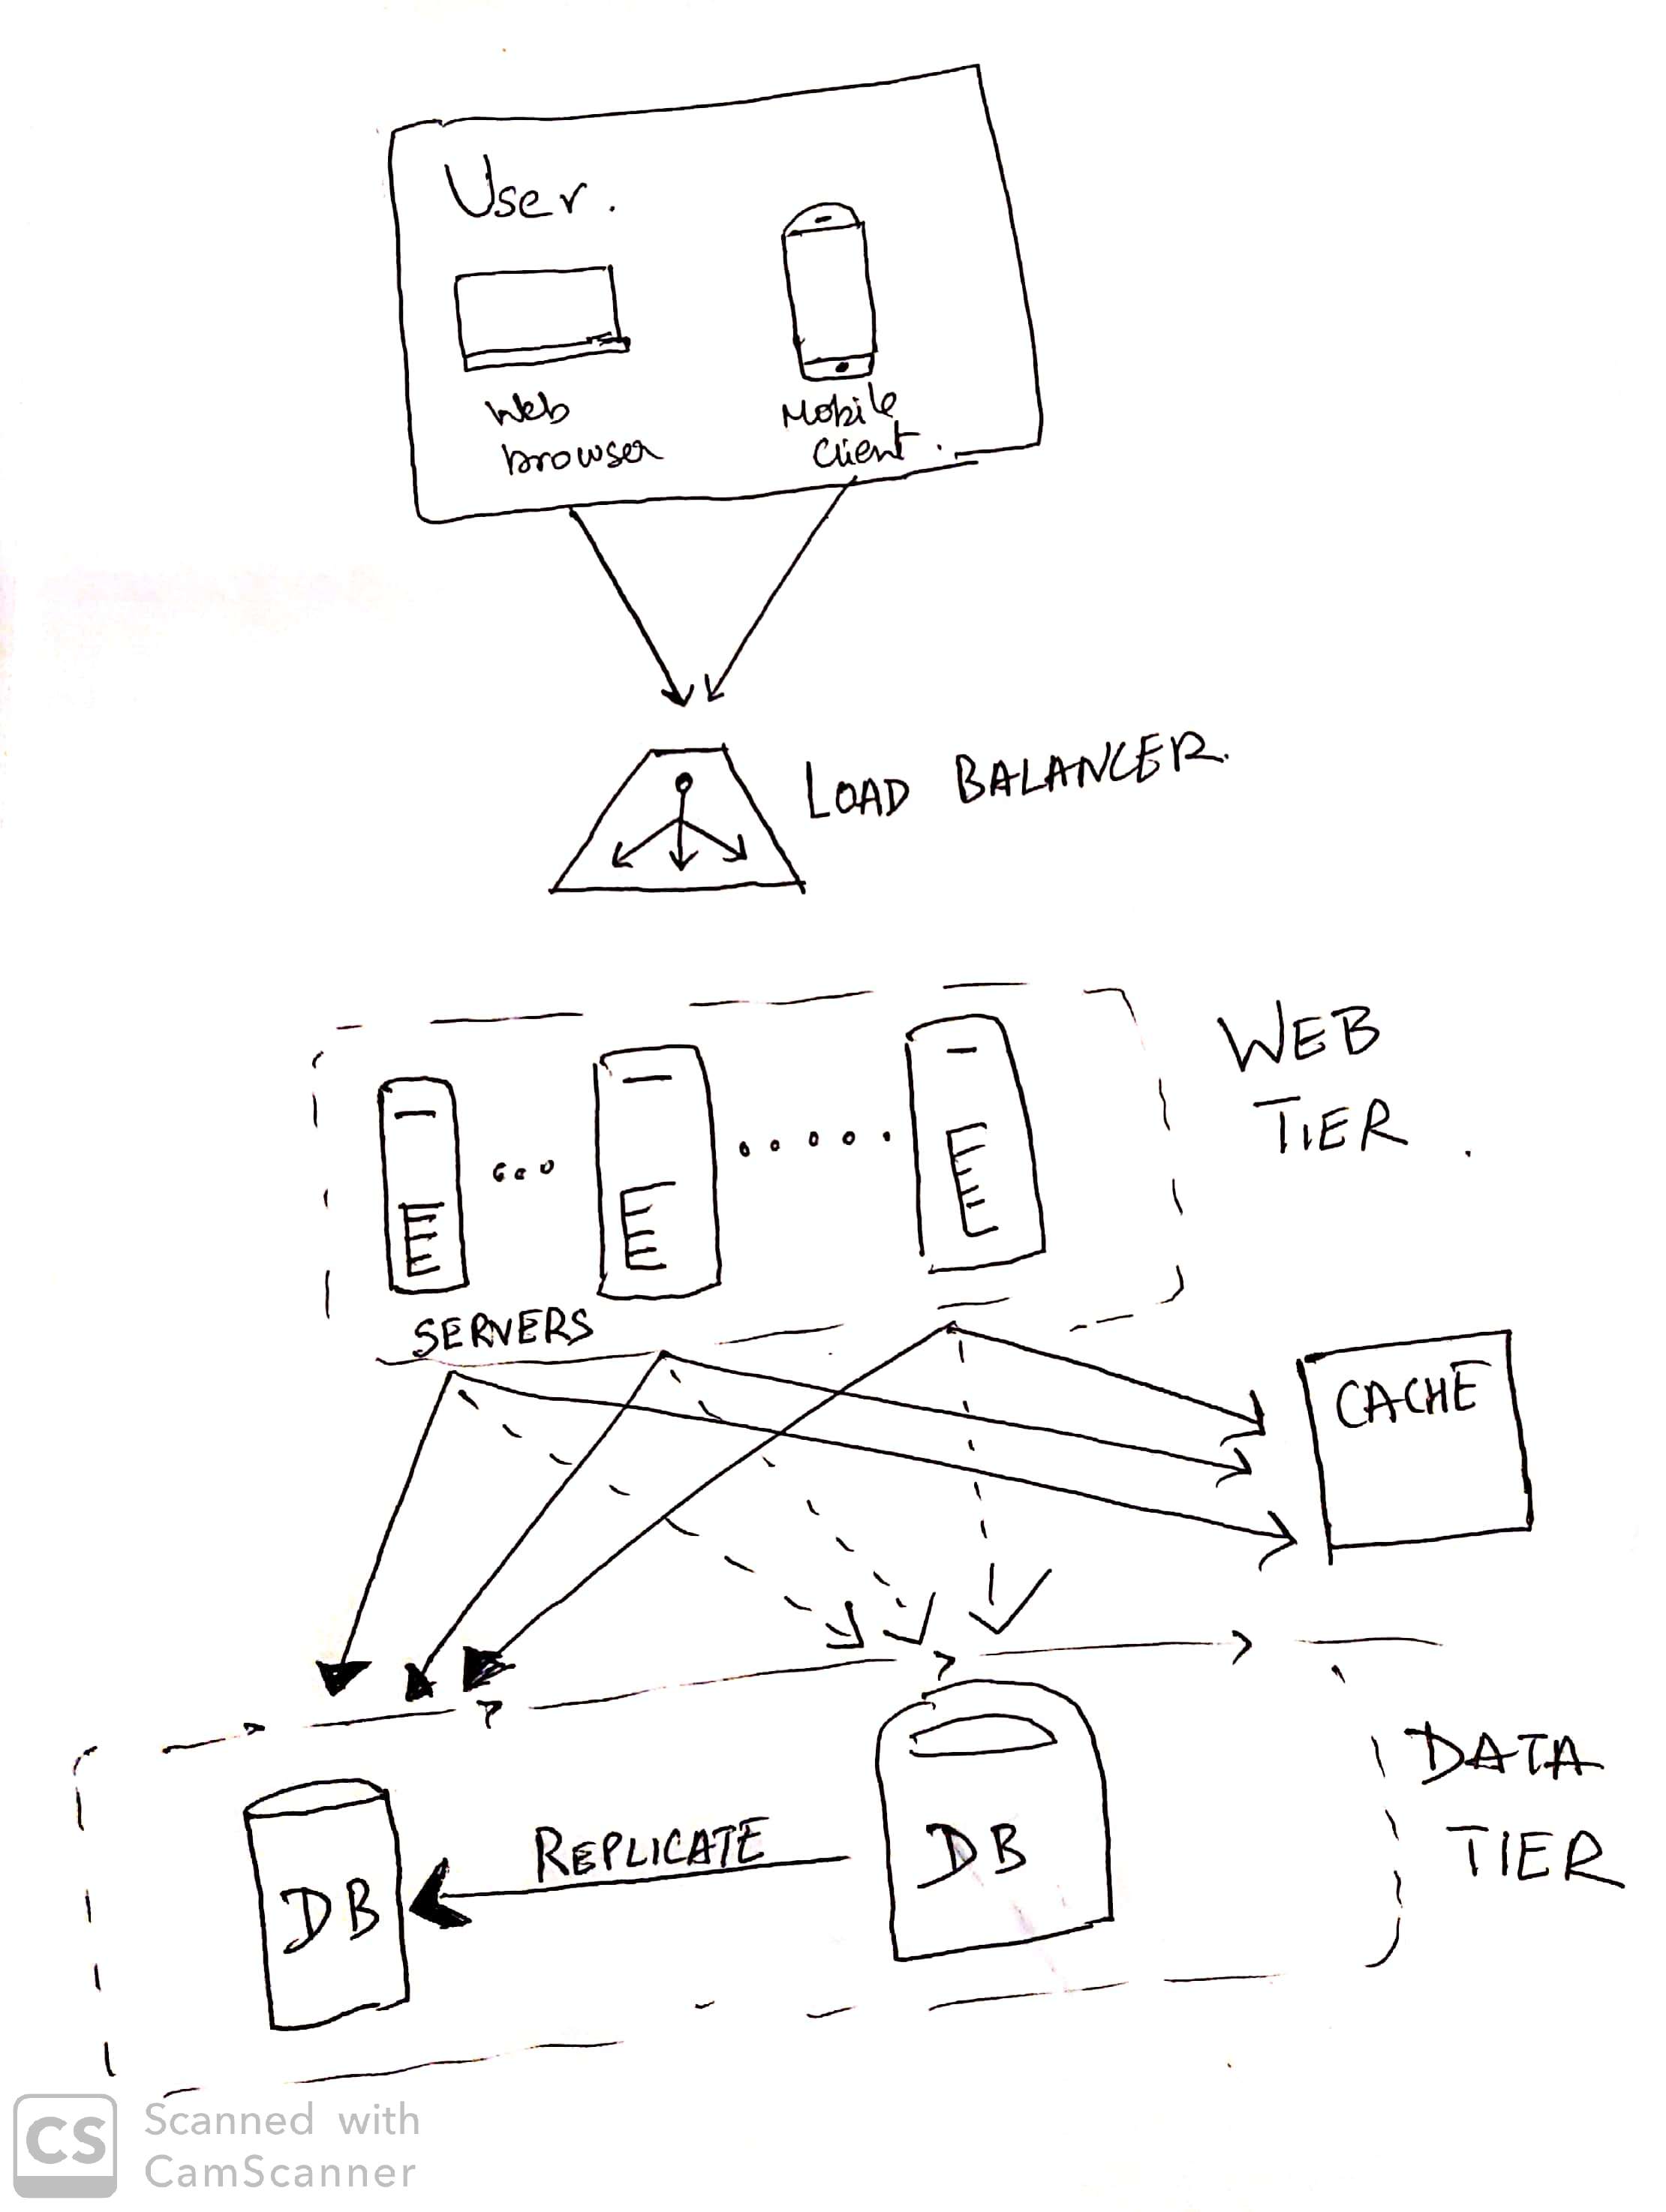 User.
Web
browser
Mobile
Client.
LOAD BALANCER.
WEB
TIER.
SERVERS
CACHE
DATA
TIER
REPLICATE
DB
DB
CS
Scanned with
CamScanner